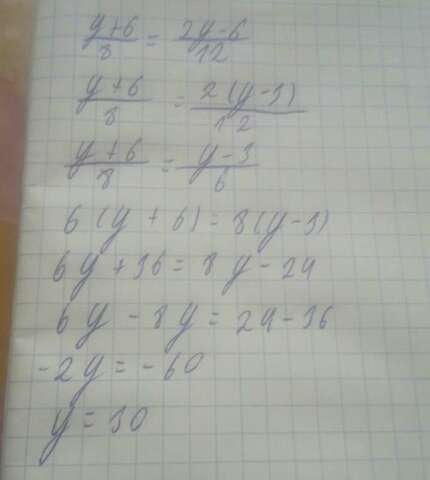 (y+6)/8 = (2y-6)/12
(y+6)/8 = 2(y-3)/12
(y+6)/8 = (y-3)/6
6(y+6)=8(y-3)
6y+36=8y-24
6y-8y=24-36
-2y=-60
y=30